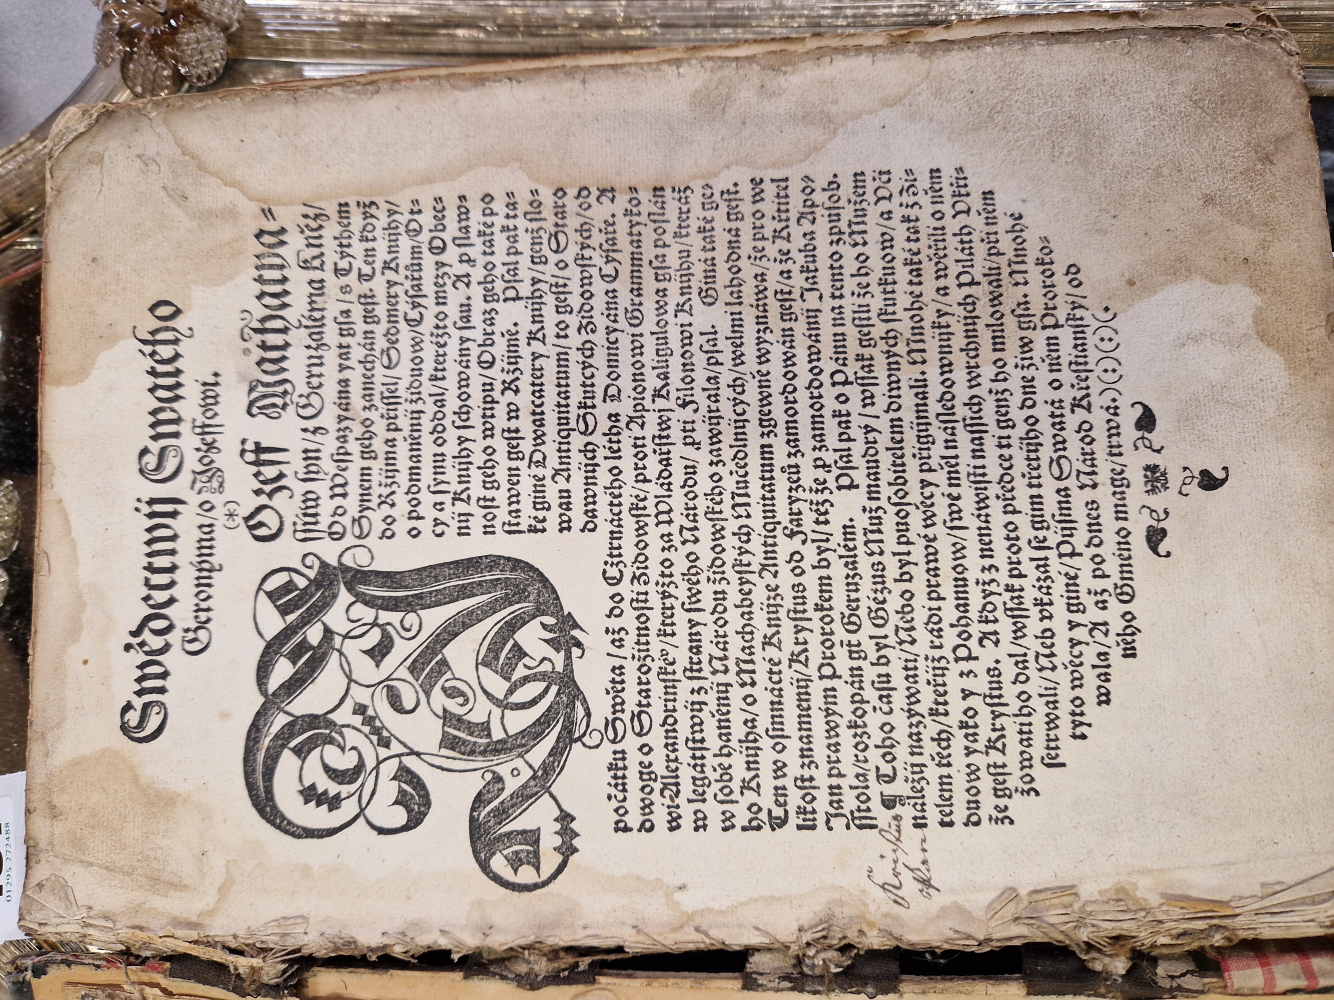 Swědectwij Swatého
Geronýma/o Jozeffowi.
(*)
JOzeff Mathatya=
ssůw syn/z Geruzaléma Kněz/
Od Wespazyána yat gsa/s Tythem
Synem geho zanechán gest. Ten když
do Ržijma přissel/Sedmery Knijhy/
o podmaněnij židuow Cysařům/Ot=
cy a synu oddal/kteréžto mezy Obec=
nij Knijhy schowány sau. A p slaw=
nost geho wtipu/Obraz geho také po
stawen gest w Ržijmě. Psal pak ta=
ké giné Dwatcatery Knijhy/genž slo=
wau Antiquitatum/to gest/o Staro
dawnijch Skutcých židowských/od
počátku Swěta/až do Cžtrnáctého létha Domicyána Cysaře. A
dwoge o Starožitnosti židowské/proti Apionowi Grammatyko=
wi Alexandrinské°/kterýžto za Wladařstwj Kaligulowa gsa poslán
w legátstwij z strany swého Národu/pti Filonowi Knijhu/kteráž
w sobě haněnij Národu židowského zawijrala/psal. Giná také ge=
ho Knijha/o Machabeyských Mučedlnijcých/welmi lahodná gest.
Ten w osmnácté Knijze Antiquitatum zgewně wyznáwa/že pro we
likost znamenij/Krystus od Faryzeů zamordowán gest/a že Křtitel
Jan prawým Prorokem byl/též že p zamordowánij Jakuba Apo=
sstola/rozkopán gt Geruzalém. Psal pak o Pánu na tento způsob.
¶ Toho času byl Gezus Muž maudrý/wssak gestli že ho Mužem
náležij nazývati/Nebo byl puosobitelem diwných skutkuow/a Uči
telem těch/kteřijž rádi prawé wěcy přigijmali. Mnohé také tak z ži=
duow yako y z Pohanuow/swé měl následownijky/a wěřili o něm
že gest Krystus. A když z nenáwisti nassich wrchnijch Pilát Ukři=
žowati ho dal/wssak proto předce ti genž ho milowali/při něm
setrwali/Neb ukázal se gim třetijho dne žiw gsa. Mnohé
tyto wěcy y giné/Pijsma Swatá o něm Prorоко=
wala/A až po dnes Národ Křestianský/od
něho Gméno mage/trwá.)(:)(:)(.